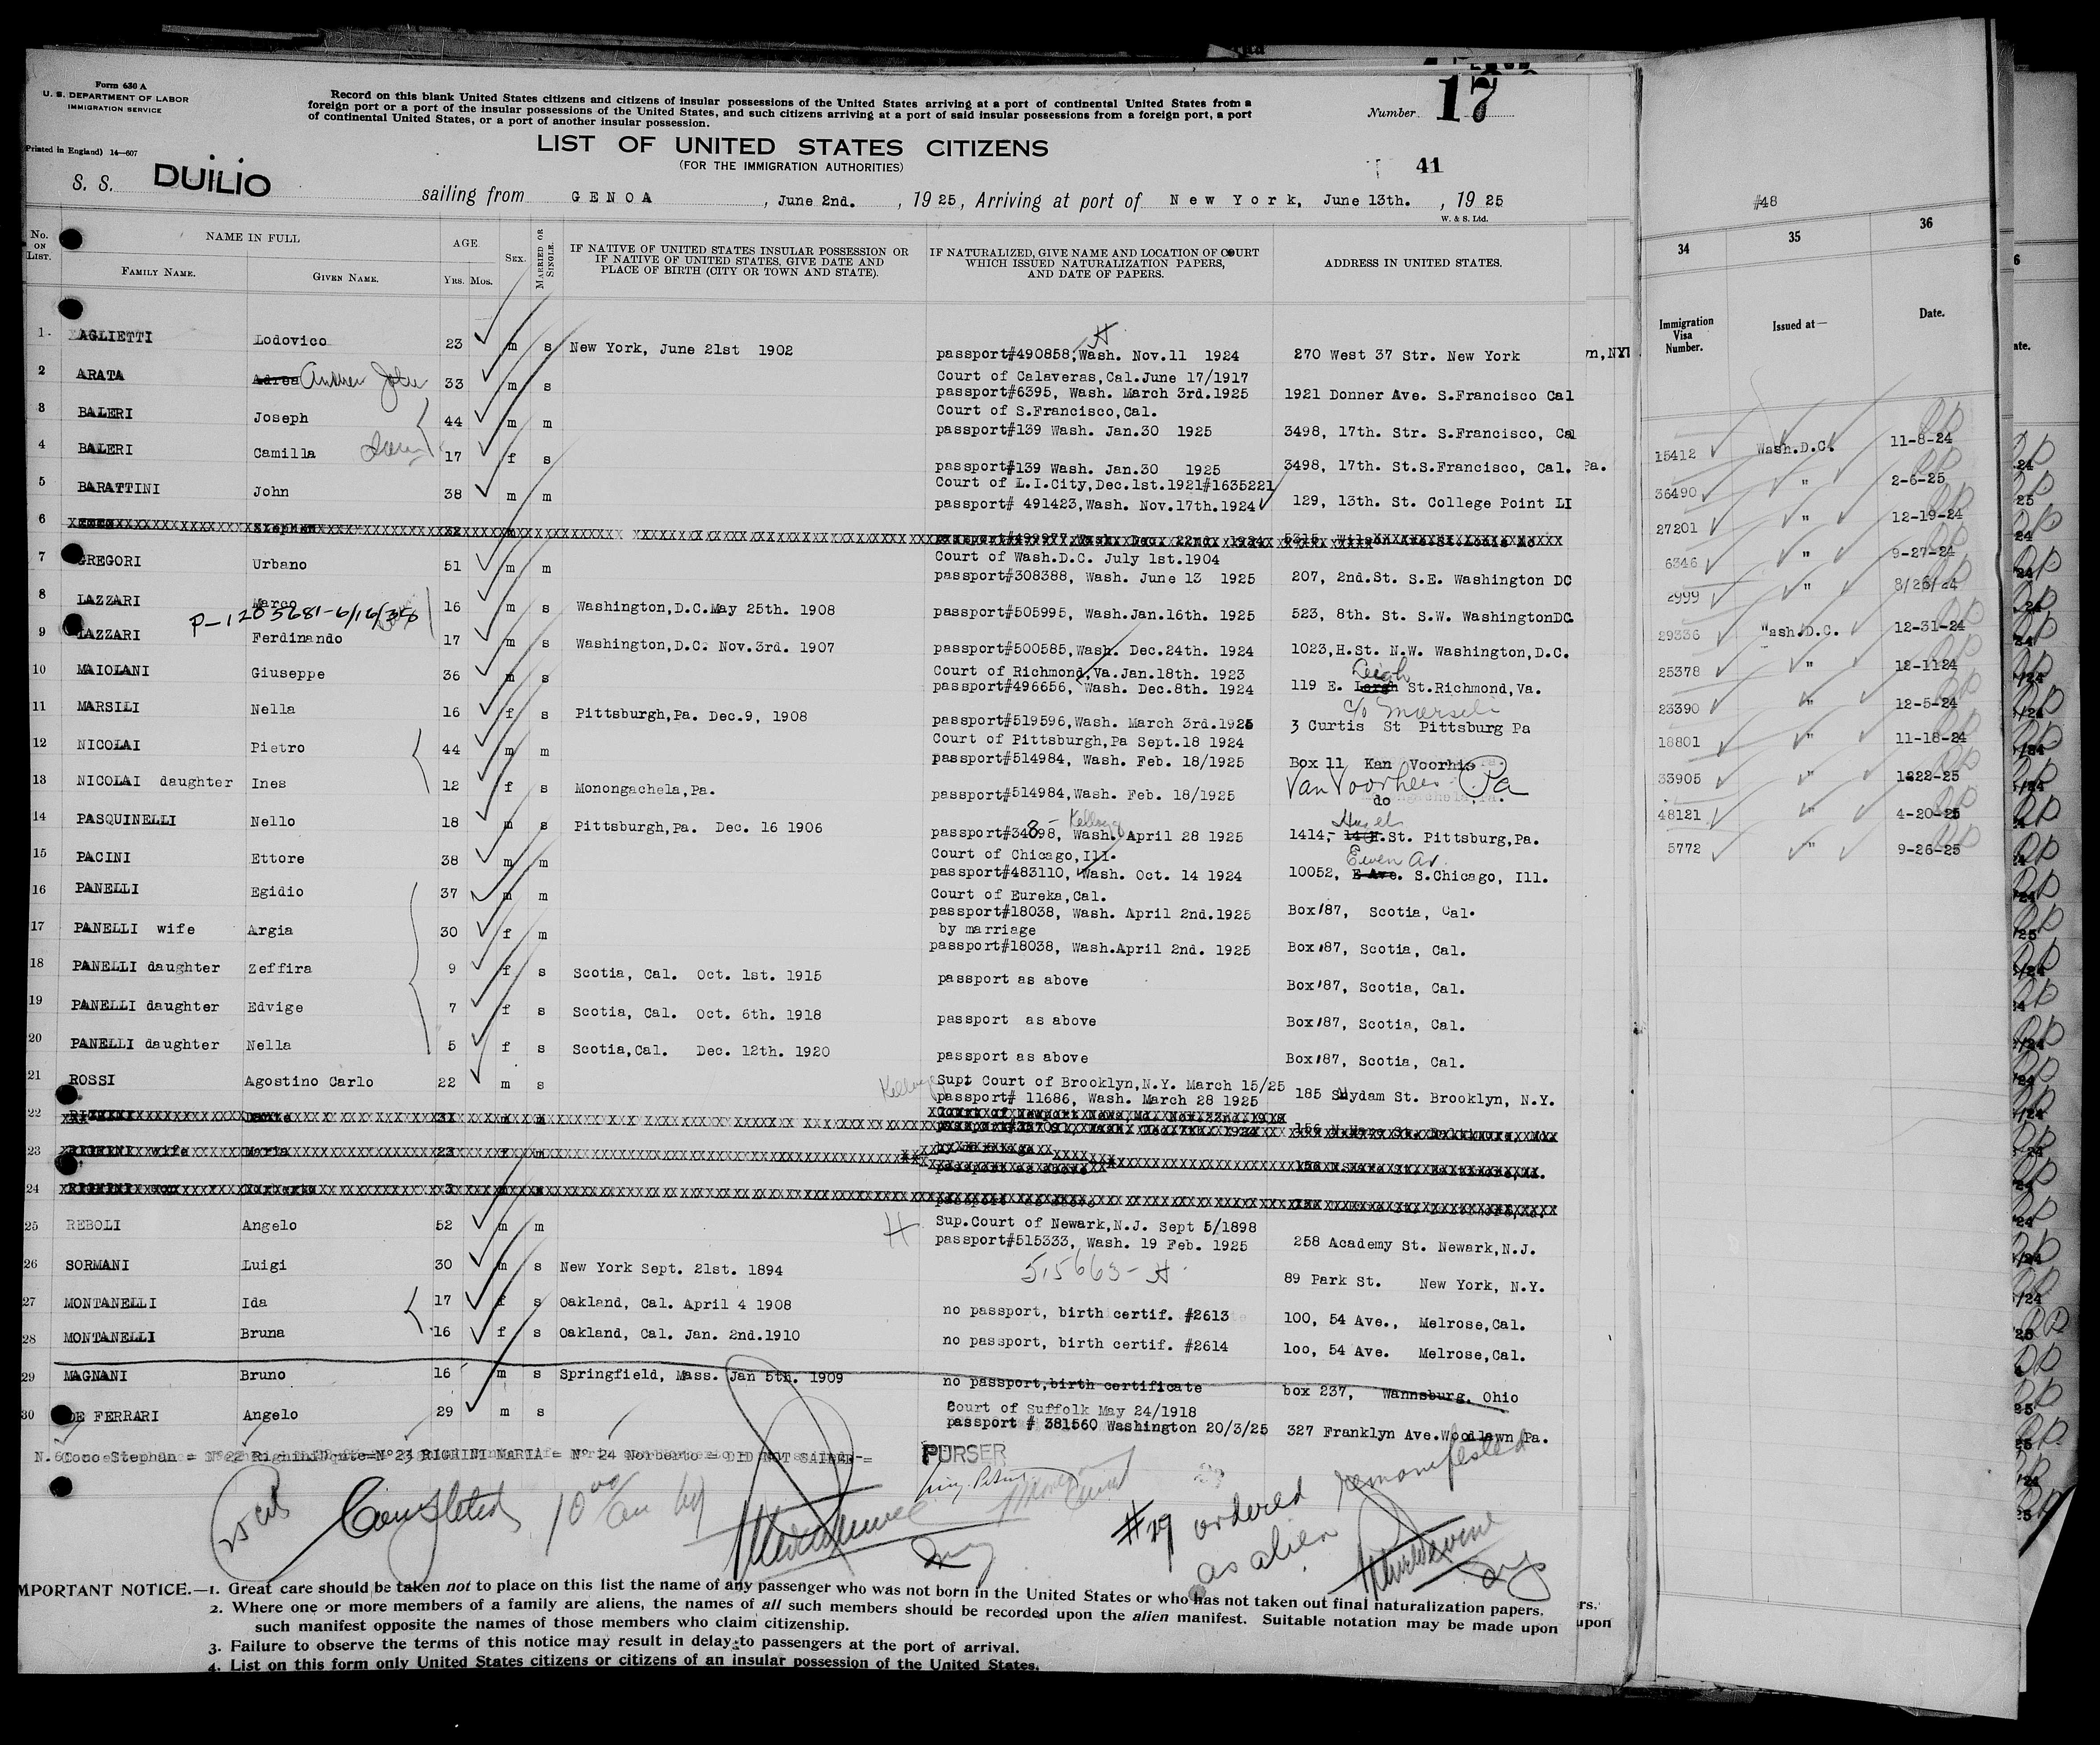 Form 630 A
U. S. DEPARTMENT OF LABOR
IMMIGRATION SERVICE
Record on this blank United States citizens and citizens of insular possessions of the United States arriving at a port of continental United States from a
foreign port or a port of the insular possessions of the United States, and such citizens arriving at a port of said insular possessions from a foreign port, a port
of continental United States, or a port of another insular possession.
Number 17
Printed in England) 14—607
LIST OF UNITED STATES CITIZENS
(FOR THE IMMIGRATION AUTHORITIES)
41
S. S. DUILIO sailing from GENOA, June 2nd., 1925, Arriving at port of New York, June 13th., 1925
W. & S. Ltd.
No. ON LIST. NAME IN FULL AGE. SEX. MARRIED OR SINGLE. IF NATIVE OF UNITED STATES INSULAR POSSESSION OR IF NATIVE OF UNITED STATES, GIVE DATE AND PLACE OF BIRTH (CITY OR TOWN AND STATE). IF NATURALIZED, GIVE NAME AND LOCATION OF COURT WHICH ISSUED NATURALIZATION PAPERS, AND DATE OF PAPERS. ADDRESS IN UNITED STATES.
FAMILY NAME. GIVEN NAME. YRS. MOS.
1 AGLIETTI Lodovico 23 m s New York, June 21st 1902 passport#490858, Wash. Nov.11 1924 270 West 37 Str. New York
2 ARATA Adrea Andrew John 33 m s Court of Calaveras,Cal.June 17/1917
passport#6395, Wash. March 3rd.1925 1921 Donner Ave. S.Francisco Cal
3 BALERI Joseph 44 m m Court of S.Francisco,Cal.
passport#139 Wash. Jan.30 1925 3498, 17th. Str. S.Francisco, Cal
4 BALERI Camilla 17 f s passport#139 Wash. Jan.30 1925 3498, 17th. St.S.Francisco, Cal.
5 BARATTINI John 38 m m Court of L.I.City,Dec.1st.1921#1635221
passport# 491423,Wash. Nov.17th.1924 129, 13th. St. College Point LI
6 Stephan 32 m passport#499977, Wash. Dec. 22nd. 1924
7 GREGORI Urbano 51 m m Court of Wash.D.C. July 1st.1904
passport#308388, Wash. June 13 1925 207, 2nd.St. S.E. Washington DC
8 LAZZARI Marco 16 m s Washington,D.C.May 25th. 1908 passport#505995, Wash.Jan.16th. 1925 523, 8th. St. S.W. WashingtonDC.
P-1203681-6/16/38
9 LAZZARI Ferdinando 17 m s Washington,D.C. Nov.3rd. 1907 passport#500585,Wash. Dec.24th. 1924 1023,H.St. N.W. Washington,D.C.
10 MAIOLANI Giuseppe 36 m s Court of Richmond,Va.Jan.18th. 1923
passport#496656, Wash. Dec.8th. 1924 119 E. Leigh St.Richmond,Va.
11 MARSILI Nella 16 f s Pittsburgh,Pa. Dec.9, 1908 passport#519596,Wash. March 3rd.1925 c/o Marsili
3 Curtis St Pittsburg Pa
12 NICOLAI Pietro 44 m m Court of Pittsburgh,Pa Sept.18 1924
passport#514984, Wash. Feb. 18/1925 Box 11 Kan Voorhis
Van Voorhees Pa
13 NICOLAI daughter Ines 12 f s Monongachela,Pa. passport#514984,Wash. Feb. 18/1925 do
14 PASQUINELLI Nello 18 m s Pittsburgh,Pa. Dec. 16 1906 passport#34898, Wash. April 28 1925 Kellogg 1414, Hazel St. Pittsburg,Pa.
15 PACINI Ettore 38 m m Court of Chicago,Ill.
passport#483110, Wash. Oct. 14 1924 10052, E Ave. Ewen Av. S.Chicago, Ill.
16 PANELLI Egidio 37 m m Court of Eureka,Cal.
passport#18038, Wash. April 2nd.1925 Box 87, Scotia, Cal.
17 PANELLI wife Argia 30 f m by marriage
passport#18038, Wash.April 2nd. 1925 Box 87, Scotia, Cal.
18 PANELLI daughter Zeffira 9 f s Scotia, Cal. Oct. 1st. 1915 passport as above Box 87, Scotia, Cal.
19 PANELLI daughter Edvige 7 f s Scotia, Cal. Oct. 6th. 1918 passport as above Box 87, Scotia, Cal.
20 PANELLI daughter Nella 5 f s Scotia,Cal. Dec. 12th. 1920 passport as above Box 87, Scotia, Cal.
21 ROSSI Agostino Carlo 22 m s Kellogg Supt Court of Brooklyn,N.Y. March 15/25
passport# 11686, Wash. March 28 1925 185 Suydam St. Brooklyn, N.Y.
22 RIGHINI Dante 31 m m Court of Newport News
23 RIGHINI wife Maria 23 f m by marriage
passport as above
24 RIGHINI son Norberto 3 m s passport as above
25 REBOLI Angelo 52 m m Sup.Court of Newark,N.J. Sept 5/1898
passport#515333, Wash. 19 Feb. 1925 258 Academy St. Newark,N.J.
26 SORMANI Luigi 30 m s New York Sept. 21st. 1894 515663-H 89 Park St. New York, N.Y.
27 MONTANELLI Ida 17 f s Oakland, Cal. April 4 1908 no passport, birth certif. #2613 100, 54 Ave., Melrose,Cal.
28 MONTANELLI Bruna 16 f s Oakland, Cal. Jan. 2nd.1910 no passport, birth certif. #2614 100, 54 Ave. Melrose,Cal.
29 MAGNANI Bruno 16 m s Springfield, Mass. Jan 5th. 1909 no passport,birth certificate box 237, Wannsburg. Ohio
30 DE FERRARI Angelo 29 m s Court of Suffolk May 24/1918
passport # 381560 Washington 20/3/25 327 Franklyn Ave.Woodlawn Pa.
N.6 Cono Stephan = N°22 Righini Dante=N°23 RIGHINI MARIA= N° 24 Norberto = DID NOT SAILED-=
PURSER
Completed 10 00 am by
#29 ordered remanifested
as alien
IMPORTANT NOTICE.—1. Great care should be taken not to place on this list the name of any passenger who was not born in the United States or who has not taken out final naturalization papers.
2. Where one or more members of a family are aliens, the names of all such members should be recorded upon the alien manifest. Suitable notation may be made upon
such manifest opposite the names of those members who claim citizenship.
3. Failure to observe the terms of this notice may result in delay to passengers at the port of arrival.
4. List on this form only United States citizens or citizens of an insular possession of the United States.
#48
34 35 36
Immigration Visa Number. Issued at— Date.
15412 Wash.D.C. 11-8-24
36490 " 2-6-25
27201 " 12-19-24
6346 " 9-27-24
2999 " 8/26/24
29336 Wash.D.C. 12-31-24
25378 " 12-1124
23390 " 12-5-24
18801 " 11-18-24
33905 " 1222-25
48121 " 4-20-25
5772 " 9-26-25